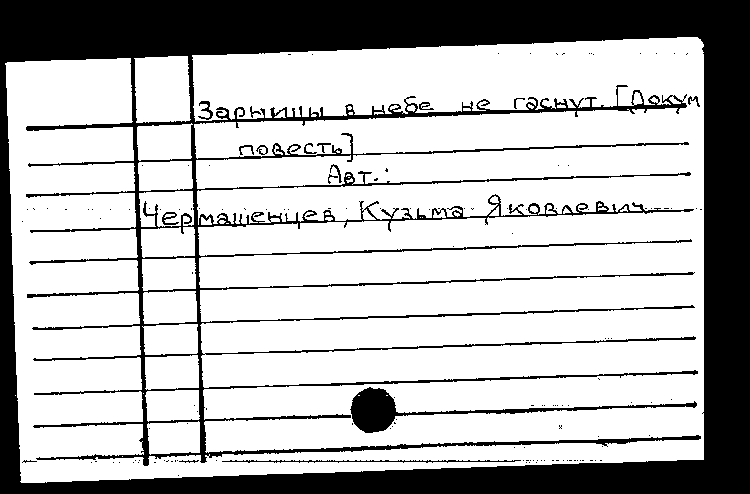 Зарницы в небе не гаснут. [Докум
повесть]
Авт.:
Чермашенцев, Кузьма Яковлевич